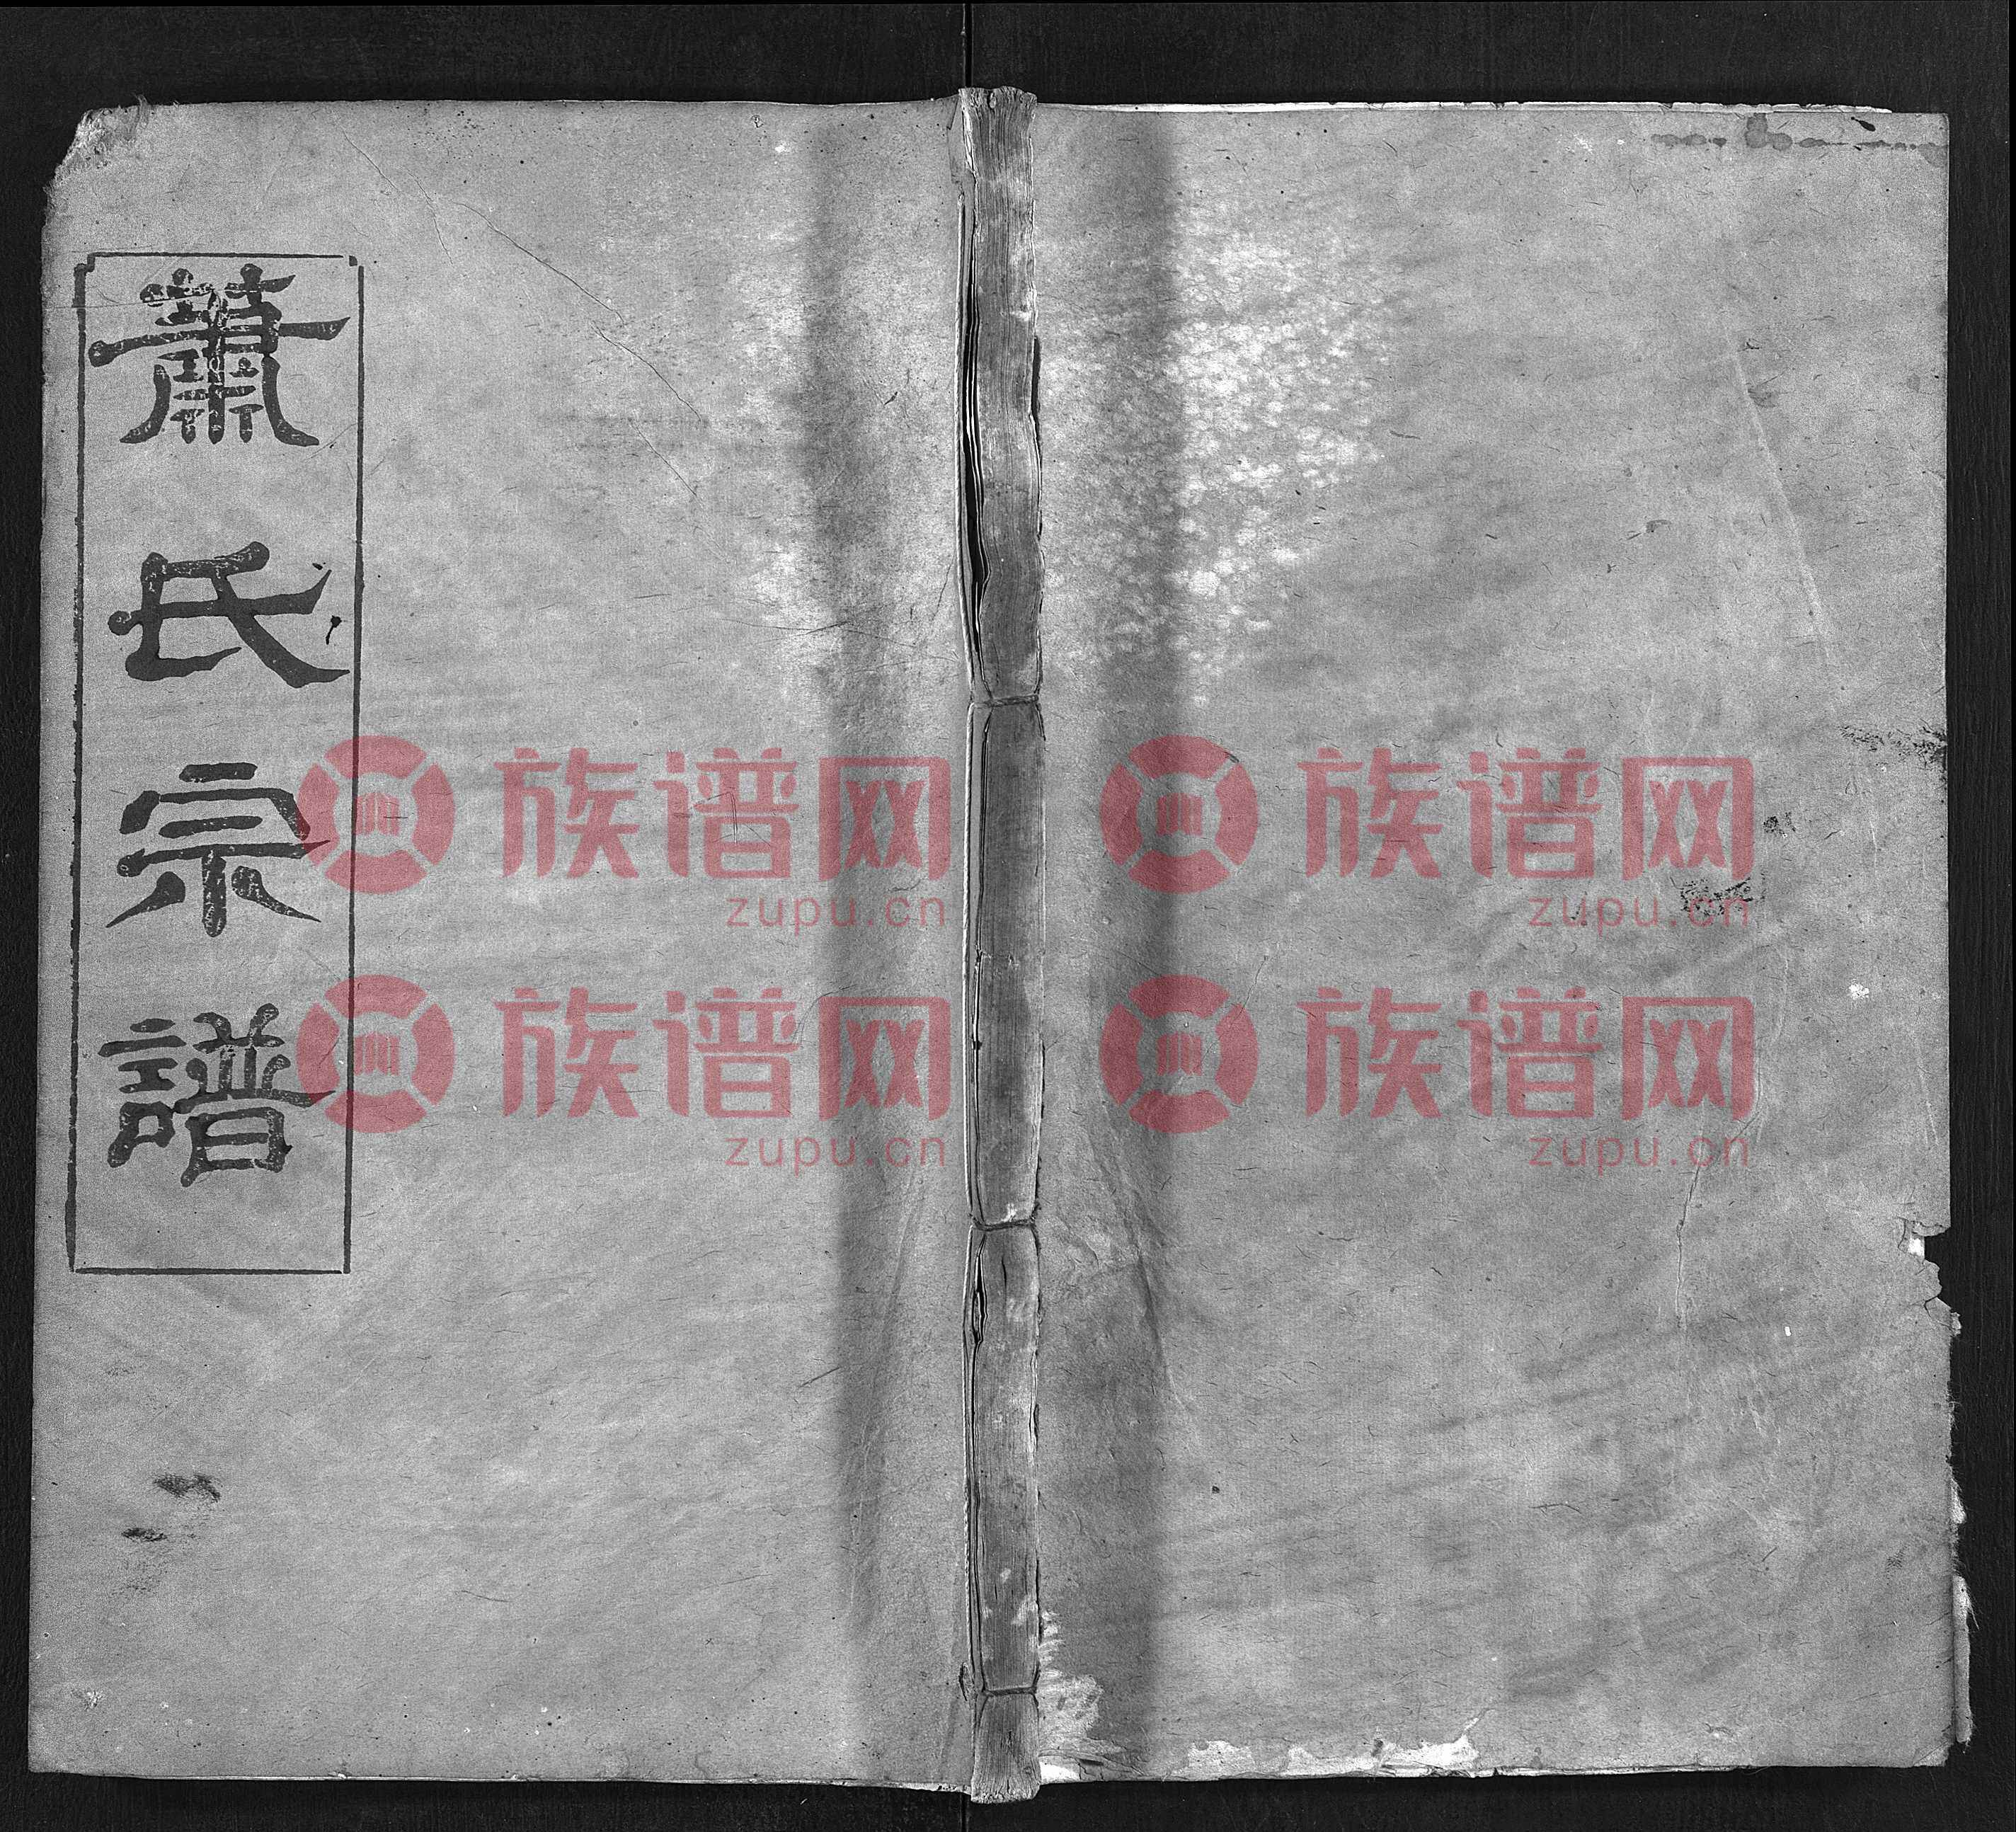 蕭氏宗譜
族谱网 族谱网
zupu.cn zupu.cn
族谱网 族谱网
zupu.cn zupu.cn